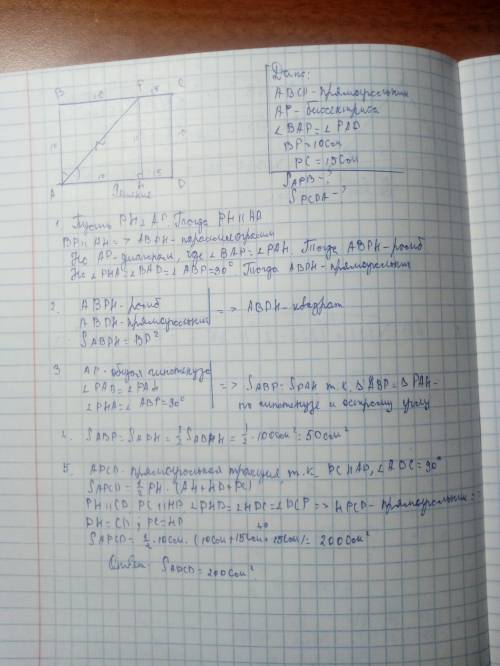 B 10 P 15 C
10
10 15
A H D
Дано:
ABCD - прямоугольник
AP - биссектриса
∠BAP = ∠PAD
BP = 10см
PC = 15см
S APB - ?
S PCDA - ?
Решение
1 Пусть PH ⊥ AD. Тогда PH ||
BP || AH => ABPH - параллелограмм
Но AP - диагональ, где ∠BAP = ∠PAH. Тогда ABPH - ромб
Но ∠PHA = ∠BAD = ∠ABP = 90° Тогда ABPH - прямоугольник
2 ABPH - ромб
ABPH - прямоугольник => ABPH - квадрат
S ABPH = BP²
3 AP - общая гипотенуза
∠PAB = ∠PAH => S ABP = S PAH т.к. △ABP = △PAH -
∠PHA = ∠ABP = 90° по гипотенузе и острому углу
4. S ABP = = 1/2 S ABPH = 1/2 · 100см² = 50см²
5. APCD - прямоугольная трапеция т.к. PC || AD, ∠ADC = 90°
S APCD = 1/2 PH · (AH + HD + PC)
PH || CD, PC || HD, ∠PHD = ∠HDC = ∠DCP => HPCD - прямоугольник =>
PH = CD; PC = HD
40
S APCD = 1/2 · 10см · (10см + 15см + 15см) = 200см²
Ответ: S APCD = 200см²